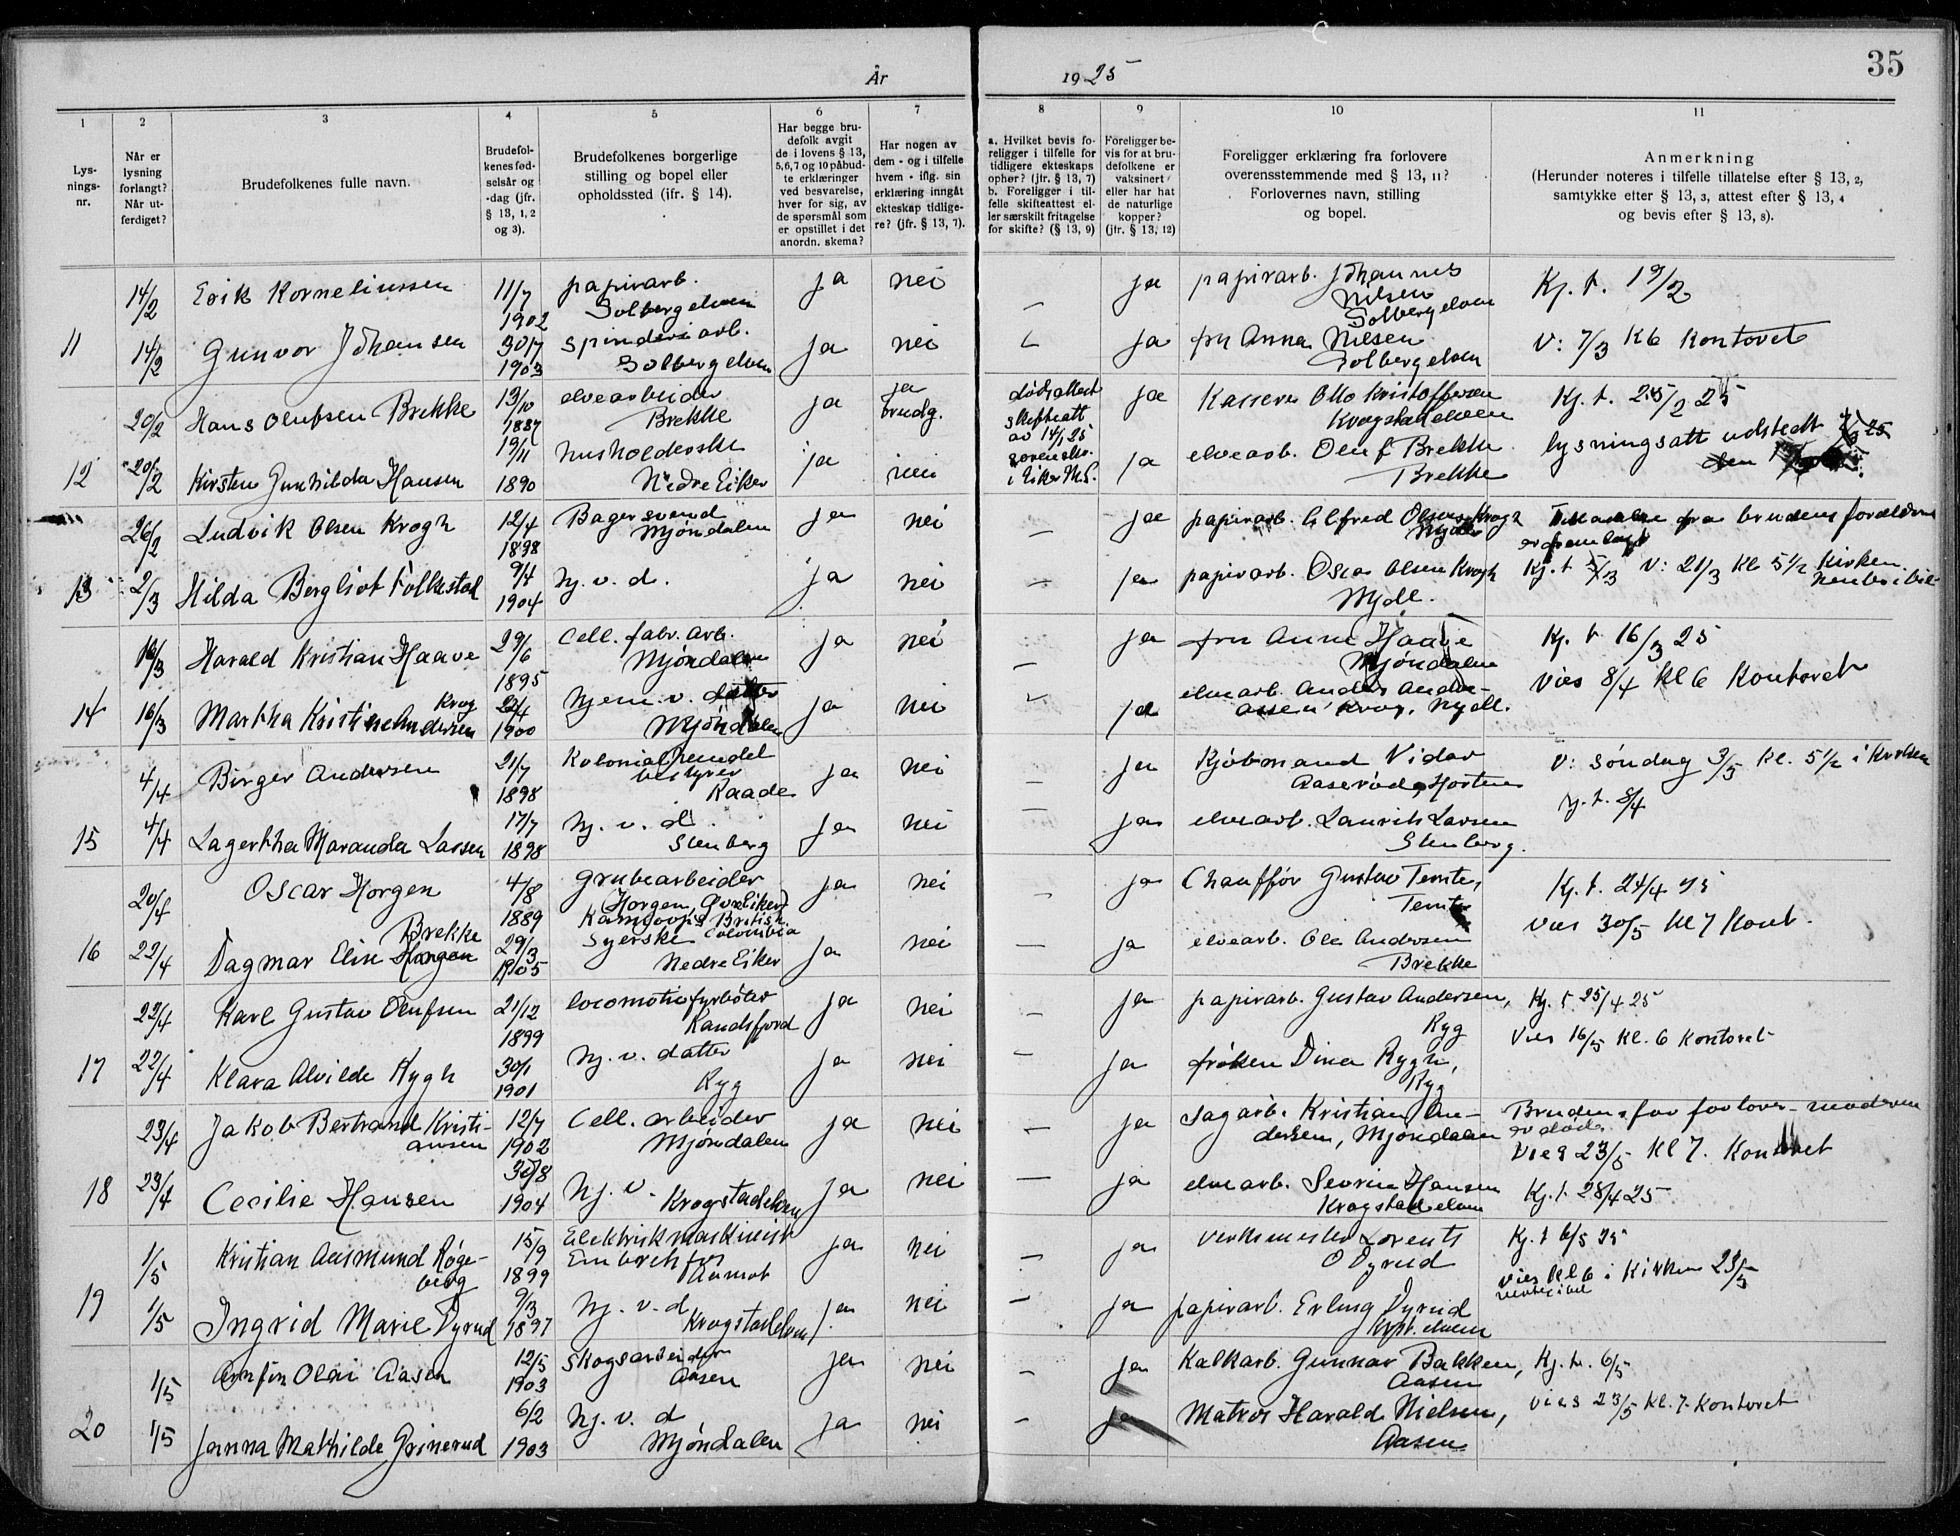 35
År
1925
1
2
3
4
5
6
7
8
9
10
11
Lys-
nings-
nr.
Når er
lysning
forlangt?
Når ut-
ferdiget?
Brudefolkenes fulle navn.
Brudefol-
kenes fød-
selsår og
-dag (jfr.
§ 13, 1, 2
og 3).
Brudefolkenes borgerlige
stilling og bopel eller
opholdssted (ifr. § 14).
Har begge bru-
defolk avgit
de i lovens § 13,
5,6,7 og 10 påbud-
te erklæringer
ved besvarelse,
hver for sig, av
de spørsmål som
er opstillet i det
anordn. skema?
Har nogen av
dem - og i tilfelle
hvem - iflg. sin
erklæring inngått
ekteskap tidlige-
re? (jfr. § 13, 7).
a. Hvilket bevis fo-
religger i tilfelle for
tidligere ekteskaps
opher? (jfr. § 13, 7)
b. Foreligger i til-
felle skifteattest el-
ler særskilt fritagelse
for skifte? (§ 13, 9)
Foreligger be-
vis for at bru-
defolkene er
vaksinert
eller har hat
de naturlige
kopper?
(jfr. § 13, 12)
Foreligger erklæring fra forlovere
overensstemmende med § 13, 11?
Forlovernes navn, stilling
og bopel.
Anmerkning
(Herunder noteres i tilfelle tillatelse efter § 13, 2,
samtykke etter § 13, 3, attest efter § 13, 4
og bevis efter § 13, 8).
14/2 Erik Korneliussen 11/7 1902 papirarb. Solbergelven ja nei — ja papirarb. Johannes Nilsen Solbergelven Kj. t. 19/2
11 14/2 Gunvor Johansen 30/7 1903 Spinderiarb. Solbergelven ja nei — ja fru Anna Nilsen Solbergelven V: 7/3 Kl 6 Kontoret
20/2 Hans Olufsen Brekke 13/10 1887 elvearbeider Brekke ja ja brudg. dødsattest skifteatt av 14/1 25 ja Kasserer Otto Kristoffersen Krogstadelven Kj. t. 25/2 25
12 20/2 Kirsten Gunhilda Hansen 19/11 1890 husholderske Nedre Eiker ja nei sorenskr. i Eiker ja elvearb. Oluf Brekke Brekke lysningsatt udstedt
26/2 Ludvik Olsen Krogh 12/4 1898 Bagersvend Mjøndalen ja nei — ja papirarb. Alfred Olsen Krogh Mjdln Tilladelse fra brudens forældre er fremlagt
13 2/3 Hilda Bergliot Folkestad 9/4 1904 hj. v. d. ja nei — ja papirarb. Oscar Olsen Krogh Mjdl. Kj. t 5/3 V: 21/3 Kl 5 1/2 Kirken
16/3 Harald Kristian Haave 29/6 1895 Cell. fabr. arb. Mjøndalen ja nei — ja fru Anne Haave Mjøndalen Kj. t 16/3 25
14 16/3 Martha Kristine Andersen Krog 1900 hjem. v. datter Mjøndalen ja nei ja elvearb. Anders Andre- assen Krog, Mjdl. Vies 8/4 Kl 6 Kontoret
4/4 Birger Andersen 21/7 1898 Kolonialhandel bestyrer Raade ja nei — ja Kjøbmand Vidar Aaserød, Horten V: søndag 3/5 kl. 5 1/2 i Kirken
15 4/4 Lagertha Maranda Larsen 17/7 1898 hj. v. d. Stenberg ja nei — ja elvearb. Laurits Larsen Stenberg. kj. t. 8/4
20/4 Oscar Horgen 4/8 1889 Grubearbeider (Horgen, Øvre Eiker) Kamloops British Columbia ja nei — ja Chauffør Gustav Temte, Temte Kj. t. 24/4 25
16 22/4 Dagmar Elin Horgen Brekke 29/3 1905 Syerske Nedre Eiker ja nei — ja elvearb. Ole Andersen Brekke Vies 30/5 Kl 7 Kont.
22/4 Karl Gustav Olufsen 21/12 1899 locomotivfyrbøter Randsfjord ja nei ja papirarb. Gustav Andersen, Ryg Kj. t 25/4 25
17 22/4 Klara Alvilde Rygh 30/1 1901 hj. v. datter Ryg ja nei — ja frøken Dina Rygh, Ryg Vies 16/5 Kl. 6 Kontoret
23/4 Jakob Bertrand Kristi- ansen 12/7 1902 Cell. arbeider Mjøndalen ja nei — ja Sagarb. Kristian An- dersen, Mjøndalen Brudens far forlover - moderen er død.
18 23/4 Cecilie Hansen 30/8 1904 hj. v. Krogstadelven ja nei — ja elvearb. Severin Hansen Krogstadelven Vies 23/5 Kl 7. Kontoret Kj. t. 28/4 25
1/5 Kristian Aasmund Røge- berg 15/9 1899 Elektriskmaskinist Embretsfos Aamot ja nei — ja verksmester Lorents O Dyrud Kj. t 6/5 25
19 1/5 Ingrid Marie Dyrud 9/3 1897 hj. v. d Krogstadelven ja. nei — ja papirarb. Erling Dyrud Krgst. elven Vies Kl 6 i Kirken 23/5
1/5 Arnfin Olai Aasen 12/5 1903 Skogsarbeider Aasen ja nei — ja Kalkarb. Gunnar Bakken, Aasen Kj. t. 6/5
20 1/5 Janna Mathilde Grinerud 6/2 1903 hj. v. d Mjøndalen ja nei — ja Matros Harald Nielsen, Aasen vies 23/5 kl. 7. Kontoret